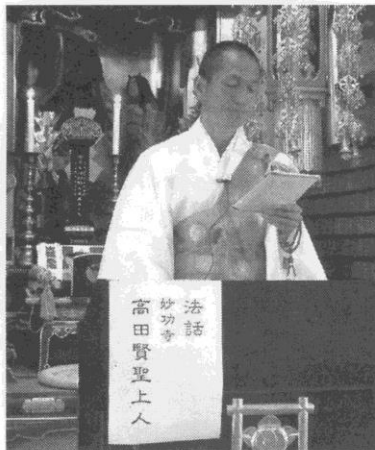 法話
妙功寺
高田賢聖上人